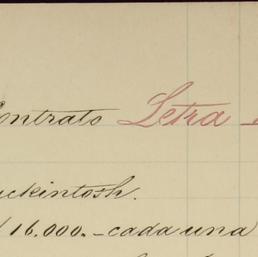 Contrato Letra
ckintosh.
16.000.- cada una